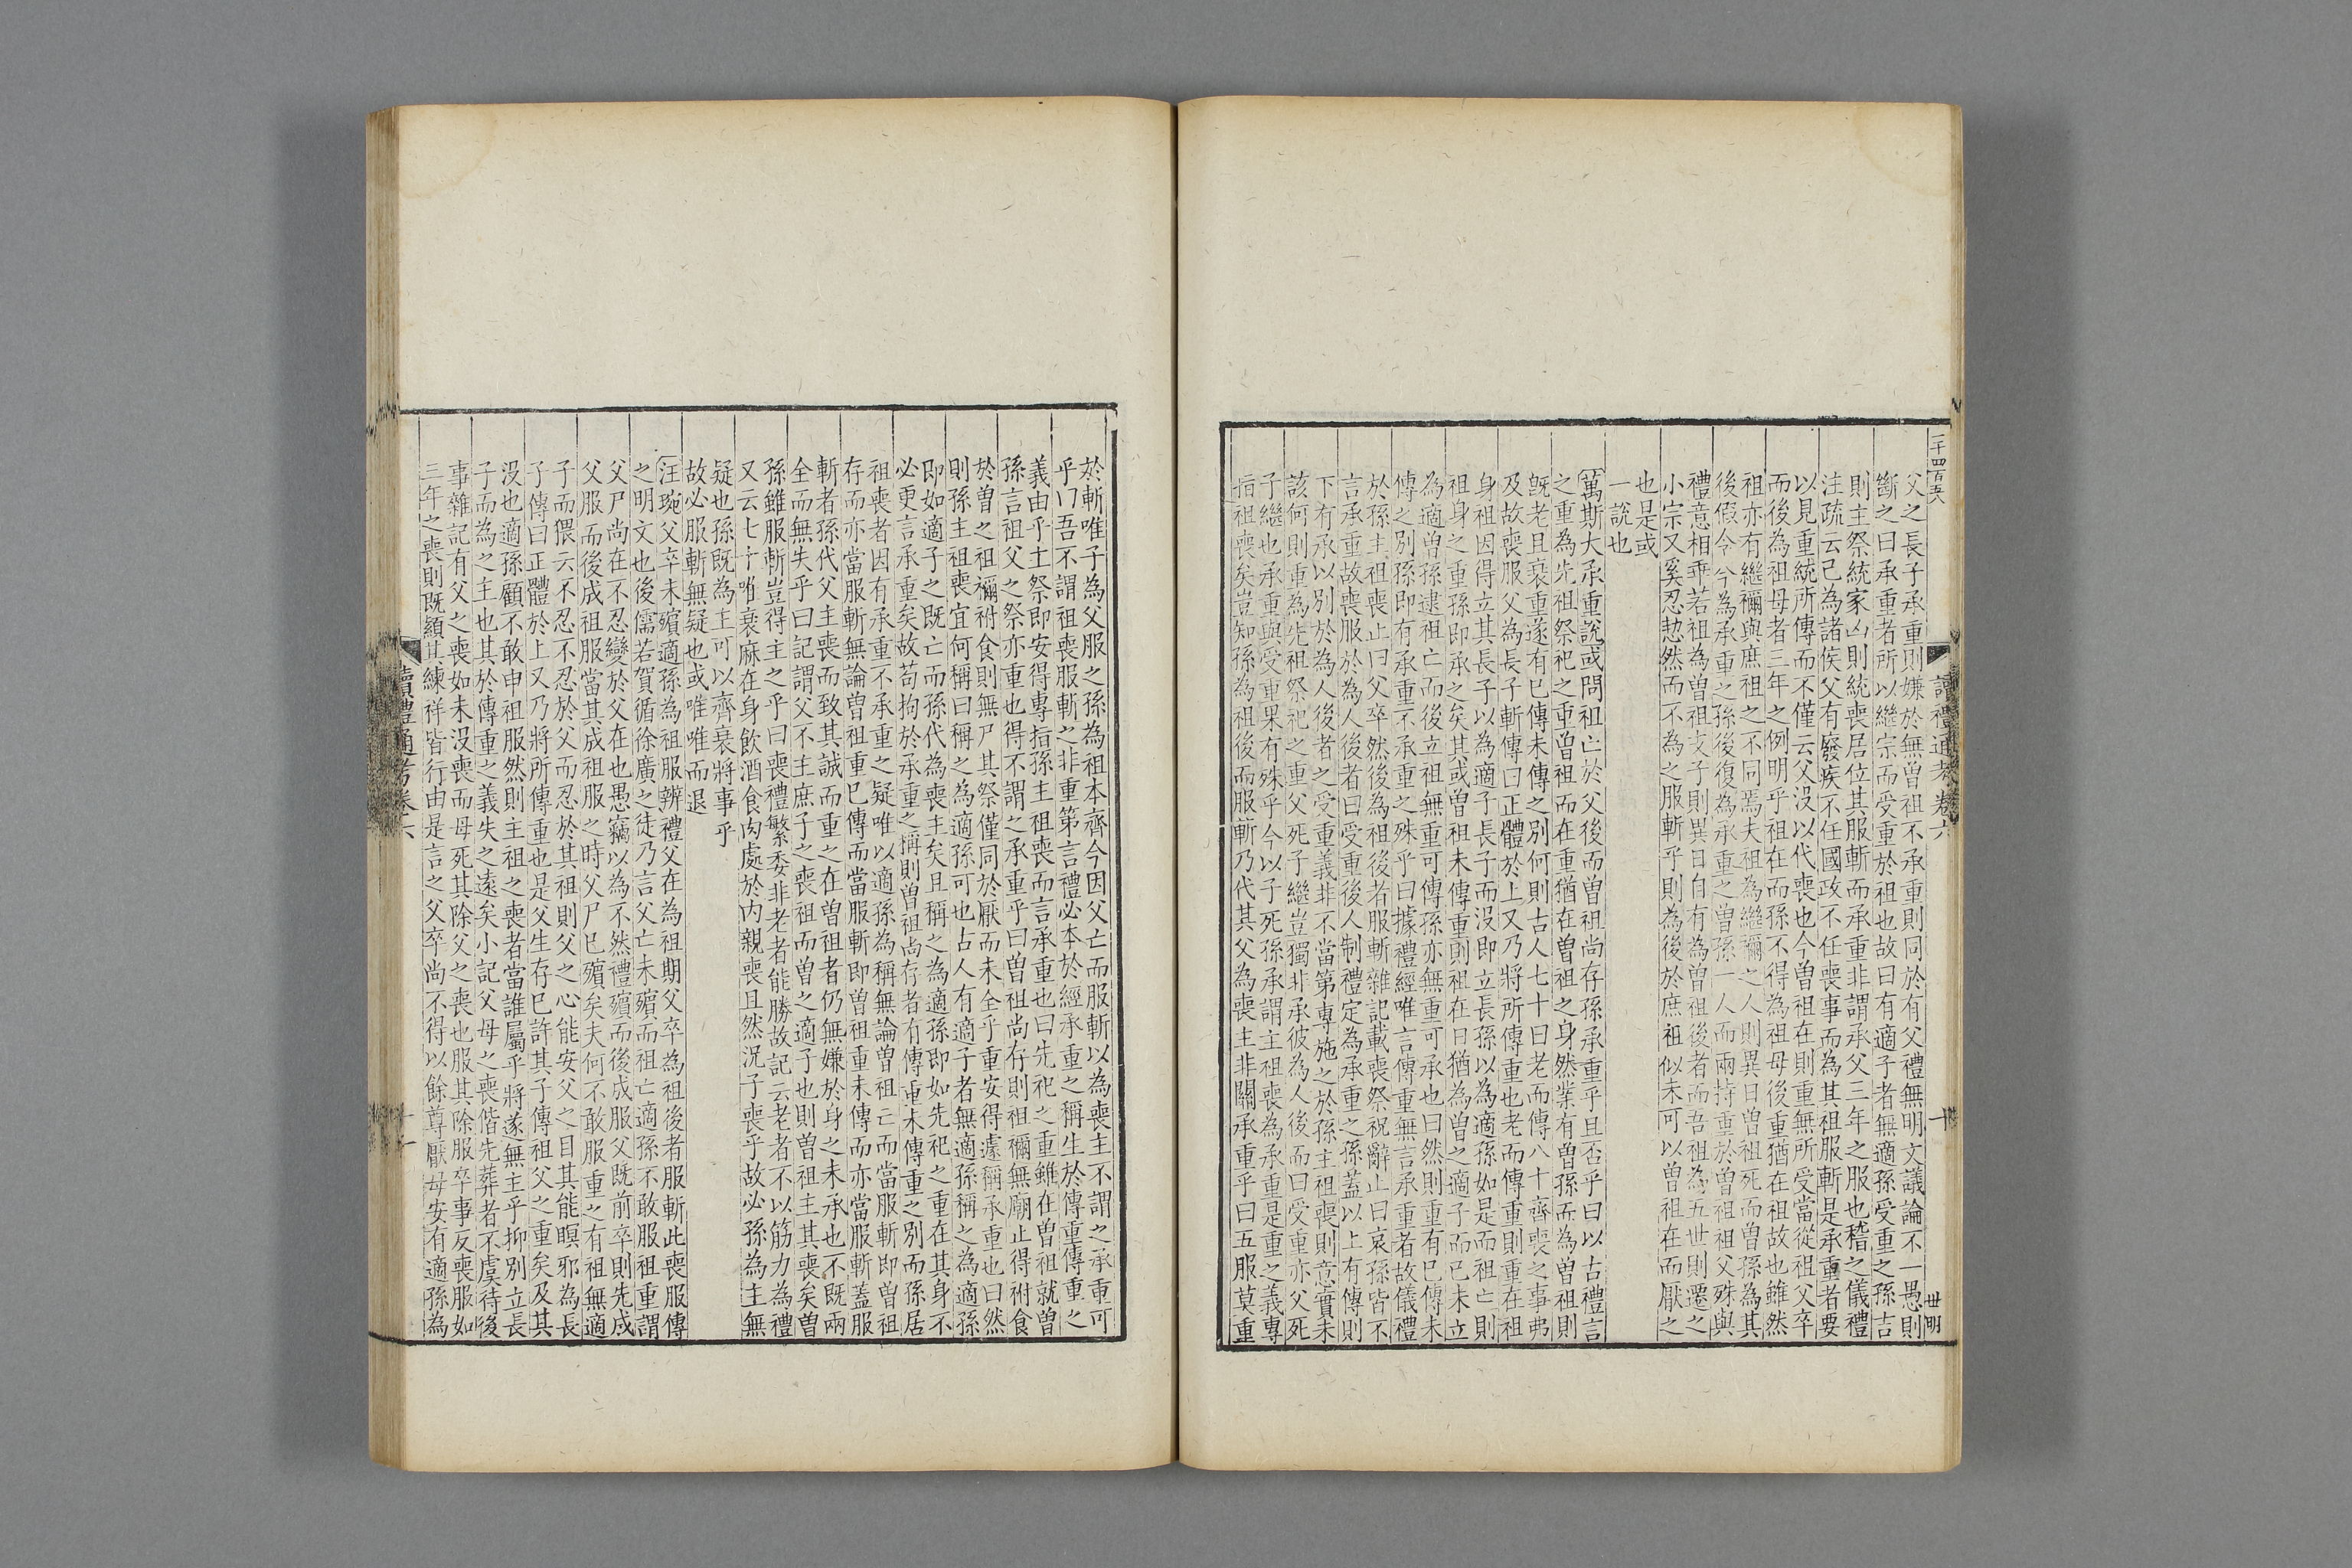 一千四百五六
讀禮通考卷六
十
世明
父之長子承重則嫌於無曾祖不承重則同於有父禮無明文議論不一愚則
斷之曰承重者所以繼宗而受重於祖也故曰有適子者無適孫受重之孫吉
則主祭統家凶則統喪居位其服斬而承重非謂承父三年之服也稽之儀禮
注疏云已為諸侯父有廢疾不任國政不任喪事而為其祖服斬是承重者要
以見重統所傳而不僅云父沒以代喪也今曾祖在則重無所受當從祖父卒
而後為祖母者三年之例明乎祖在而孫不得為祖母後重猶在祖故也雖然
祖亦有繼禰與庶祖之不同焉夫祖為繼禰之人則異日曾祖死而曾孫為其
後假令今為承重之孫後復為承重之曾孫一人而兩持重於曾祖祖父殊與
禮意相乖若祖為曾祖支子則異日自有為曾祖後者而吾祖為五世則遷之
小宗又奚忍恝然而不為之服斬乎則為後於庶祖似未可以曾祖在而厭之
也是或
一說也
萬斯大承重說或問祖亡於父後而曾祖尚存孫承重乎且否乎曰以古禮言
之重為先祖祭祀之重曾祖而在重猶在曾祖之身然業有曾孫而為曾祖則
既老且衰重遂有已傳未傳之別何則古人七十曰老而傳八十齊喪之事弗
及故喪服父為長子斬傳曰正體於上又乃將所傳重也老而傳重則重在祖
身祖因得立其長子以為適子長子而沒即立長孫以為適孫如是而祖亡則
祖身之重孫即承之矣其或曾祖未傳重則祖在日猶為曾之適子而已未立
為適曾孫逮祖亡而後立祖無重可傳孫亦無重可承也曰然則重有已傳未
傳之別孫即有承重不承重之殊乎曰據禮經唯言傳重無言承重者故儀禮
於孫主祖喪止曰父卒然後為祖後者服斬雜記載喪祭祝辭止曰哀孫皆不
言承重故喪服於為人後者曰受重後人制禮定為承重之孫蓋以上有傳則
下有承以別於為人後者之受重義非不當第專施之於孫主祖喪則意實未
該何則重為先祖祭祀之重父死子繼豈獨非承彼為人後而曰受重亦父死
子繼也承重與受重果有殊乎今以子死孫承謂主祖喪為承重是重之義專
指祖喪矣豈知孫為祖後而服斬乃代其父為喪主非關承重乎曰五服莫重
於斬唯子為父服之孫為祖本齊今因父亡而服斬以為喪主不謂之承重可
乎曰吾不謂祖喪服斬之非重第言禮必本於經承重之稱生於傳重傳重之
義由乎主祭即安得專指孫主祖喪而言承重也曰先祀之重雖在曾祖就曾
孫言祖父之祭亦重也得不謂之承重乎曰曾祖尚存則祖禰無廟止得祔食
於曾之祖禰祔食則無尸其祭僅同於厭而未全乎重安得遽稱承重也曰然
則孫主祖喪宜何稱曰稱之為適孫可也古人有適子者無適孫稱之為適孫
即如適子之既亡而孫代為喪主矣且稱之為適孫即如先祀之重在其身不
必更言承重矣故苟拘於承重之稱則曾祖尚存者有傳重未傳重之別而孫居
祖喪者因有承重不承重之疑唯以適孫為稱無論曾祖亡而當服斬即曾祖
存而亦當服斬無論曾祖重已傳而當服斬即曾祖重未傳而亦當服斬蓋服
斬者孫代父主喪而致其誠而重之在曾祖者仍無嫌於身之未承也不既兩
全而無失乎曰記謂父不主庶子之喪祖而曾之適子也則曾祖主其喪矣曾
孫雖服斬豈得主之乎曰喪禮繁委非老者能勝故記云老者不以筋力為禮
又云七十唯衰麻在身飲酒食肉處於內親喪且然況子喪乎故必孫為主無
疑也孫既為主可以齊衰將事乎
故必服斬無疑也或唯唯而退
汪琬父卒未殯適孫為祖服辨禮父在為祖期父卒為祖後者服斬此喪服傳
之明文也後儒若賀循徐廣之徒乃言父亡未殯而祖亡適孫不敢服祖重謂
父尸尚在不忍變於父在也愚竊以為不然禮殯而後成服父既前卒則先成
父服而後成祖服當其成祖服之時父尸已殯矣夫何不敢服重之有祖無適
子而猥云不忍不忍於父而忍於其祖則父之心能安父之目其能瞑邪為長
子傳曰正體於上又乃將所傳重也是父生存已許其子傳祖父之重矣及其
沒也適孫顧不敢申祖服然則主祖之喪者當誰屬乎將遂無主乎抑別立長
子而為之主也其於傳重之義失之遠矣小記父母之喪偕先葬者不虞待後
事雜記有父之喪如未沒喪而母死其除父之喪也服其除服卒事反喪服如
三年之喪則既顈其練祥皆行由是言之父卒尚不得以餘尊厭母安有適孫為
讀禮通考卷六
十一